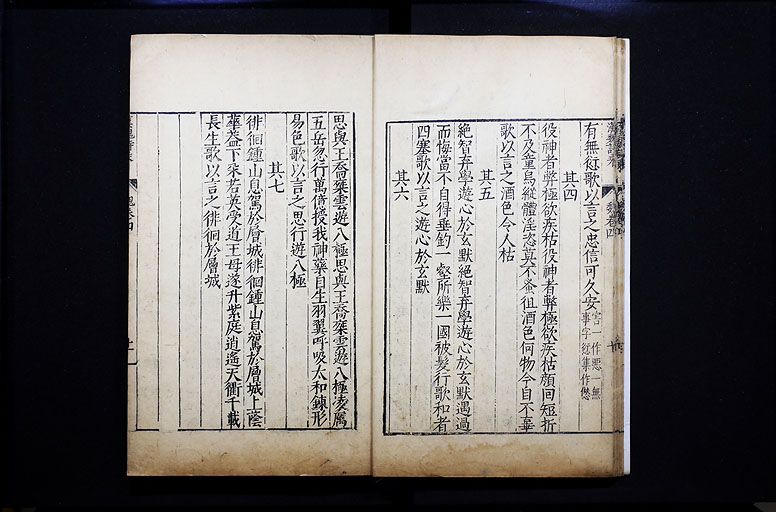 有無愆歌以言之忠信可久安害一作惡一無
事字愆集作
其四
役神者弊極欲疾枯役神者弊極欲疾枯顏回短折
不及童烏縱體淫恣莫不蚤徂酒色何物今自不辜
歌以言之酒色令人枯
其五
絶智弃學遊心於玄默絶智弃學遊心於玄默遇過
而悔當不自得垂釣一壑所樂一國被髮行歌和者
四塞歌以言之遊心於玄默
其六
思與王喬椉雲遊八極思與王喬椉雲遊八極凌厲
五岳忽行萬億授我神藥自生羽翼呼吸太和鍊形
易色歌以言之思行遊八極
其七
徘徊鍾山息駕於層城徘徊鍾山息駕於層城上蔭
華蓋下采若英受道王母遂升紫庭逍遙天衢千載
長生歌以言之徘徊於層城